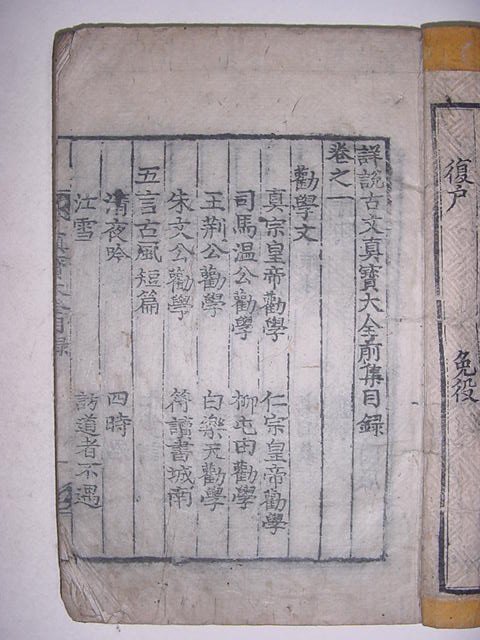 復戶
免役
詳說古文真寶大全前集目録
卷之一
勸學文
真宗皇帝勸學
仁宗皇帝勸學
司馬溫公勸學
柳屯田勸學
王荆公勸學
白樂天勸學
朱文公勸學
符讀書城南
五言古風短篇
清夜吟
四時
江雪
訪道者不遇
真寶大全目録